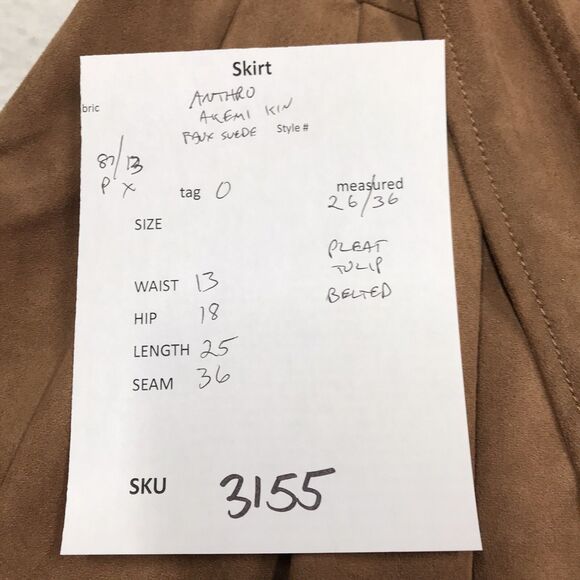 Skirt
bric
ANTHRO
AKEMI KIN
FAUX SUEDE Style #
87/13
P X
tag 0
measured
26/36
SIZE
PLEAT
TULIP
BELTED
WAIST 13
HIP 18
LENGTH 25
SEAM 36
SKU 3155